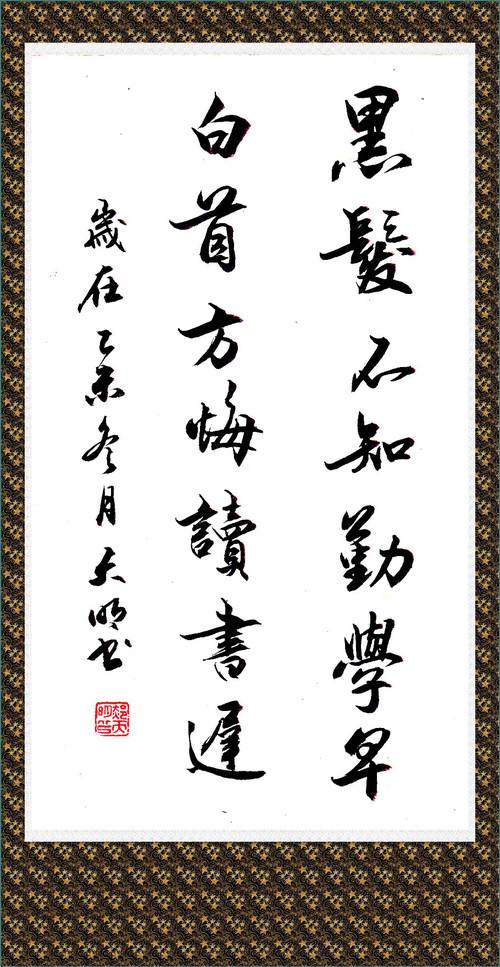 黑髮不知勤學早
白首方悔讀書遲
歲在乙未冬月大明書